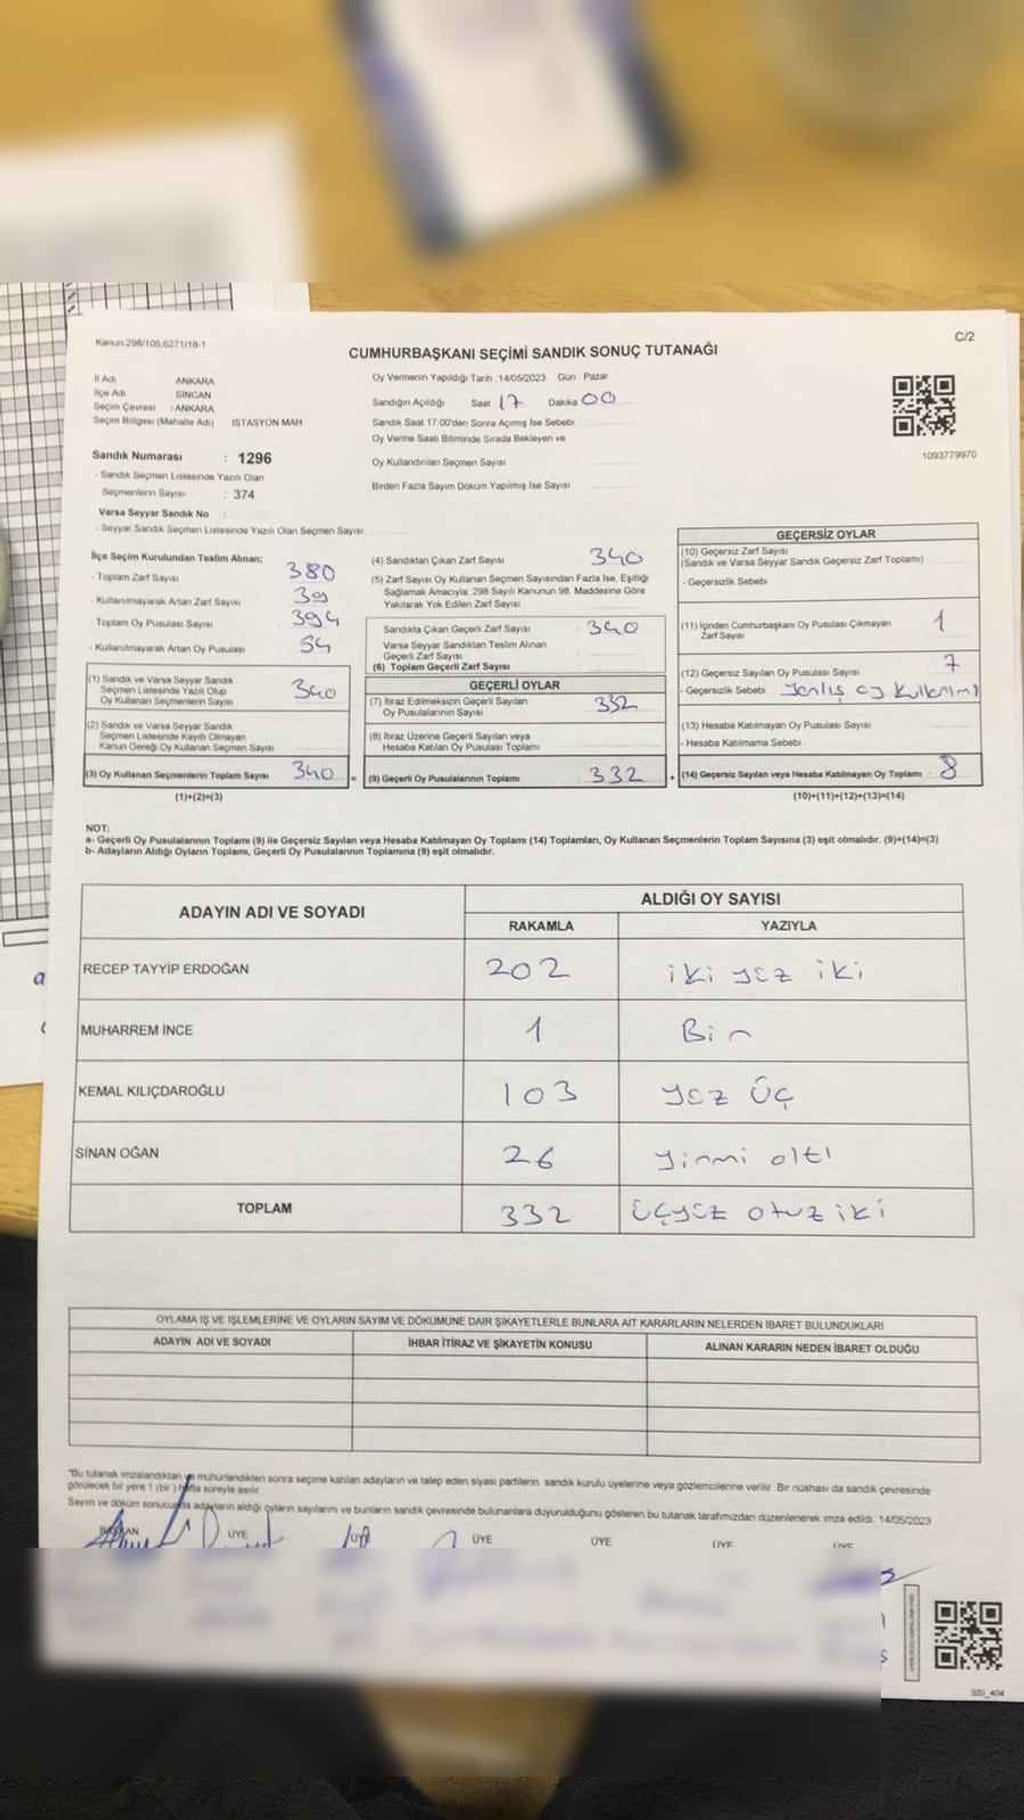 Kanun:298/105,6271/18-1
C/2
CUMHURBAŞKANI SEÇİMİ SANDIK SONUÇ TUTANAĞI
İl Adı : ANKARA
İlçe Adı : SİNCAN
Seçim Çevresi : ANKARA
Seçim Bölgesi (Mahalle Adı) İSTASYON MAH.
Sandık Numarası : 1296
- Sandık Seçmen Listesinde Yazılı Olan
Seçmenlerin Sayısı : 374
Varsa Seyyar Sandık No :
- Seyyar Sandık Seçmen Listesinde Yazılı Olan Seçmen Sayısı
Oy Vermenin Yapıldığı Tarih :14/05/2023 Gün : Pazar
Sandığın Açıldığı Saat 17 Dakika 00
Sandık Saat 17.00'den Sonra Açımış İse Sebebi
Oy Verme Saati Bitiminde Sırada Bekleyen ve
Oy Kullandırılan Seçmen Sayısı
Birden Fazla Sayım Döküm Yapılmış İse Sayısı
1093779970
İlçe Seçim Kurulundan Teslim Alınan;
- Toplam Zarf Sayısı 380
- Kullanılmayarak Artan Zarf Sayısı 39
- Toplam Oy Pusulası Sayısı 394
- Kullanılmayarak Artan Oy Pusulası 54
(1) Sandık ve Varsa Seyyar Sandık
Seçmen Listesinde Yazılı Olup
Oy Kullanan Seçmenlerin Sayısı 340
(2) Sandık ve Varsa Seyyar Sandık
Seçmen Listesinde Kayıtlı Olmayan
Kanun Gereği Oy Kullanan Seçmen Sayısı
(3) Oy Kullanan Seçmenlerin Toplam Sayısı 340 =
(1)+(2)=(3)
(4) Sandıktan Çıkan Zarf Sayısı 340
(5) Zarf Sayısı Oy Kullanan Seçmen Sayısından Fazla İse, Eşitliği
Sağlamak Amacıyla, 298 Sayılı Kanunun 98. Maddesine Göre
Yakılarak Yok Edilen Zarf Sayısı
Sandıkta Çıkan Geçerli Zarf Sayısı 340
Varsa Seyyar Sandıktan Teslim Alınan
Geçerli Zarf Sayısı
(6) Toplam Geçerli Zarf Sayısı
GEÇERLİ OYLAR
(7) İtiraz Edilmeksizin Geçerli Sayılan
Oy Pusulalarının Sayısı 332
(8) İtiraz Üzerine Geçerli Sayılan veya
Hesaba Katılan Oy Pusulası Toplamı
(9) Geçerli Oy Pusulalarının Toplamı 332 +
GEÇERSİZ OYLAR
(10) Geçersiz Zarf Sayısı
(Sandık ve Varsa Seyyar Sandık Geçersiz Zarf Toplamı)
- Geçersizlik Sebebi
(11) İçinden Cumhurbaşkanı Oy Pusulası Çıkmayan
Zarf Sayısı 1
(12) Geçersiz Sayılan Oy Pusulası Sayısı 7
- Geçersizlik Sebebi Yanlış oy kullanımı
(13) Hesaba Katılmayan Oy Pusulası Sayısı
- Hesaba Katılmama Sebebi
(14) Geçersiz Sayılan veya Hesaba Katılmayan Oy Toplamı 8
(10)+(11)+(12)+(13)=(14)
NOT:
a- Geçerli Oy Pusulalarının Toplamı (9) ile Geçersiz Sayılan veya Hesaba Katılmayan Oy Toplamı (14) Toplamları, Oy Kullanan Seçmenlerin Toplam Sayısına (3) eşit olmalıdır. (9)+(14)=(3)
b- Adayların Aldığı Oyların Toplamı, Geçerli Oy Pusulalarının Toplamına (9) eşit olmalıdır.
ADAYIN ADI VE SOYADI
ALDIĞI OY SAYISI
RAKAMLA YAZIYLA
RECEP TAYYİP ERDOĞAN 202 iki yüz iki
MUHARREM İNCE 1 Bir
KEMAL KILIÇDAROĞLU 103 yüz üç
SİNAN OĞAN 26 yirmi altı
TOPLAM 332 üçyüz otuz iki
OYLAMA İŞ VE İŞLEMLERİNE VE OYLARIN SAYIM VE DÖKÜMÜNE DAİR ŞİKAYETLERLE BUNLARA AİT KARARLARIN NELERDEN İBARET BULUNDUKLARI
ADAYIN ADI VE SOYADI İHBAR İTİRAZ VE ŞİKAYETİN KONUSU ALINAN KARARIN NEDEN İBARET OLDUĞU
"Bu tutanak imzalandıktan ve mühürlendikten sonra seçime katılan adayların ve talep eden siyasi partilerin sandık kurulu üyelerine veya gözlemcilerine verilir. Bir nüshası da sandık çevresinde
görülecek bir yere 1 (bir) hafta süreyle asılır.
Sayım ve döküm sonucunda adayların aldığı oyların sayılarını ve bunların sandık çevresinde bulunanlara duyurulduğunu gösteren bu tutanak tarafımızdan düzenlenerek imza edildi. 14/05/2023
BAŞKAN ÜYE ÜYE ÜYE ÜYE ÜYE ÜYE